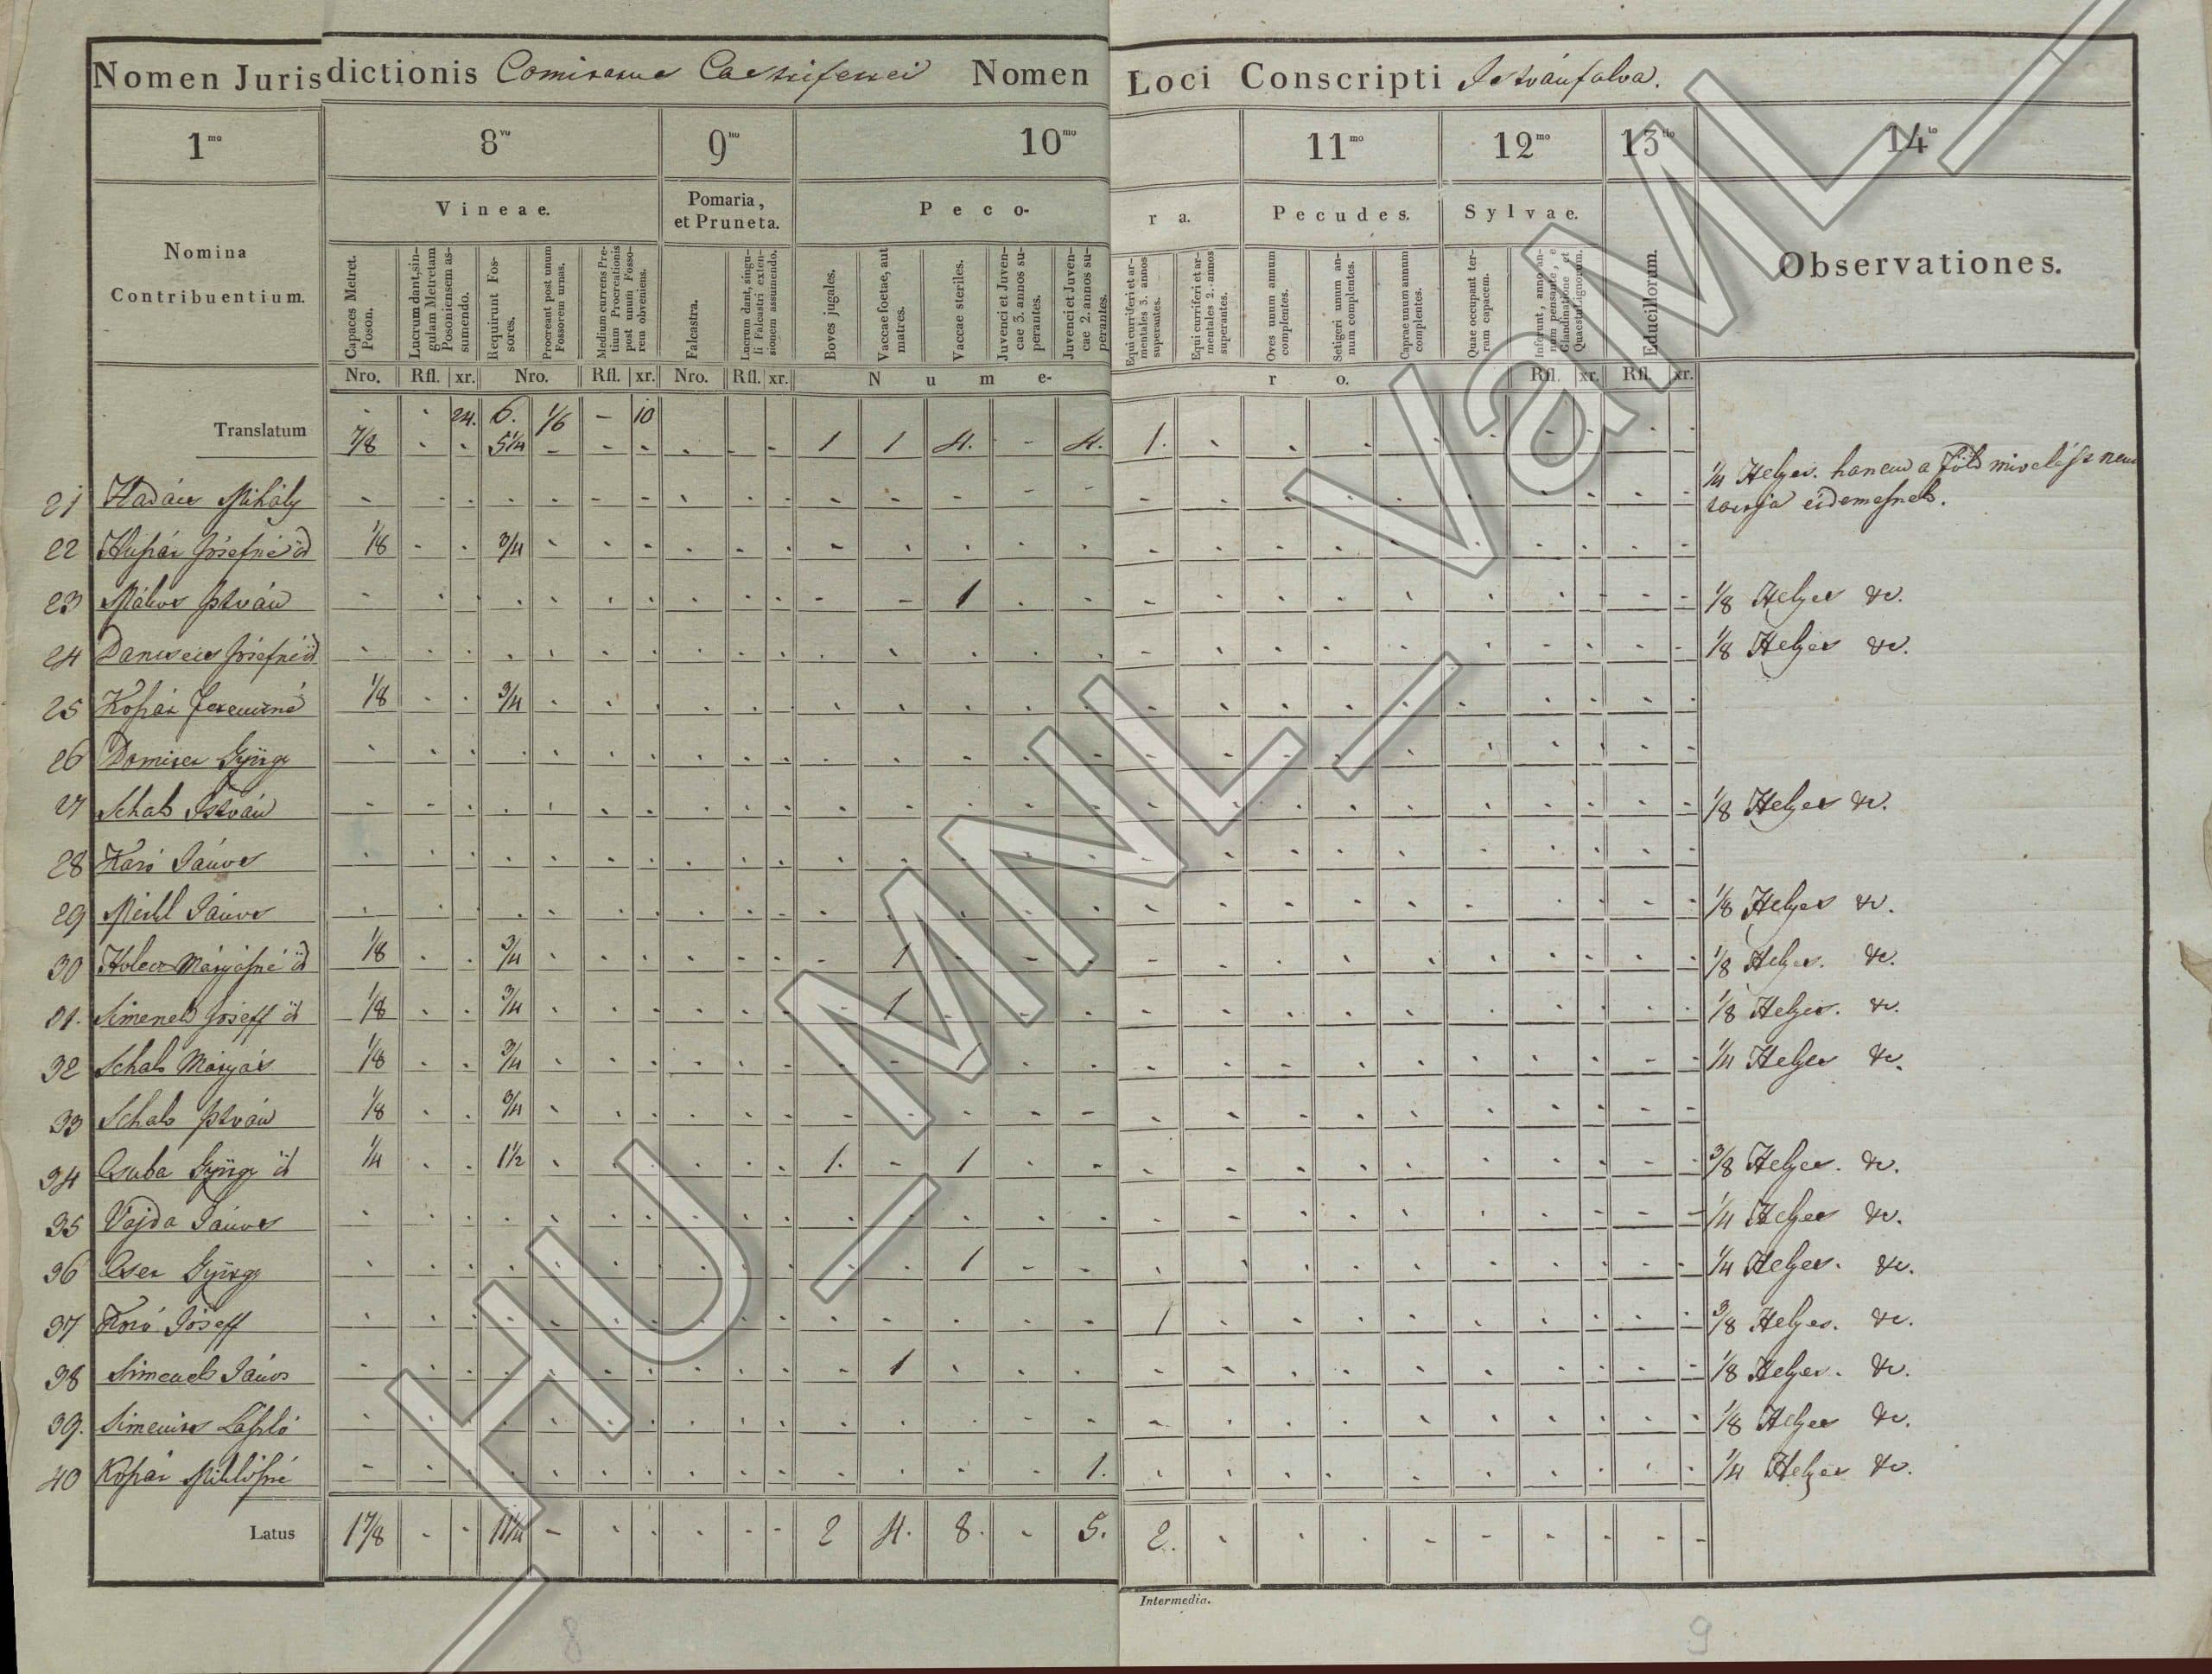 Nomen Jurisdictionis Comitatus Castriferrei Nomen Loci Conscripti Istvánfalva.
1mo 8vo 9no 10mo 11mo 12mo 13tio 14to
Nomina Contribuentium.
Vineae.
Pomaria, et Pruneta.
Pecora.
Pecudes.
Sylvae.
Educillorum.
Observationes.
Capaces Metret. Poson.
Lucrum dant, singulam Metretam Posoniensem assumendo.
Requirunt Fossores.
Procreant post unum Fossorem urnas.
Medium currens Pretium Procreationis post unum Fossorem obveniens.
Falcastra.
Lucrum dant, singuli Falcastri extensionem assumendo.
Boves jugales.
Vaccae foetae, aut matres.
Vaccae steriles.
Juvenci et Juvencae 3. annos superantes.
Juvenci et Juvencae 2. annos superantes.
Equi curriferi et armentales 3. annos superantes.
Equi curriferi et armentales 2. annos superantes.
Oves unum annum complentes.
Setigeri unum annum complentes.
Caprae unum annum complentes.
Quae occupant terram capacem.
Inferunt, anno annum pensante, e Glandinatione et Quaestu Lignorum.
Nro. Rfl. xr. Nro. Rfl. xr. Nro. Rfl. xr. Nume- ro. Rfl. xr. Rfl. xr.
- - 24. 6. 1/6 - 10
Translatum 7/8 - - 5 1/4 - - - - - - 1 1 4. - 4. 1.
21 Mihály 1/4 Helyes. hanem a föld
22 Jósefné öd 1/8 3/4
23 István 1 1/8 Helyes &c.
24 Jósefné öd 1/8 Helyes &c.
25 Kopár Ferenczné 1/8 3/4
26 György
27 Schab István 1/8 Helyes &c.
28 Karó János
29 János 1/8 Helyes &c.
30 Mátyásné öd 1/8 3/4 1 1/8 Helyes. &c.
31. Simenek Joseff öd 1/8 3/4 1 1/8 Helyes. &c.
32 Schab Mátyás 1/8 3/4 1 1/4 Helyes &c.
33 Schab István 1/8 3/4
34 Csuba György öd 1/4 1 1/2 1. 1 3/8 Helyes. &c.
35 Vajda János 1/4 Helyes &c.
36 Cser György 1 1/4 Helyes. &c.
37 Karó Joseff 1 3/8 Helyes. &c.
38 Simenek János 1 1/8 Helyes. &c.
39. László 1/8 Helyes &c.
40 Kopár Miklósné 1. 1/4 Helyes &c.
Latus 1 7/8 - - 11 1/4 - - - - - - 2 4. 8. - 5. 2.
Intermedia.
8
9
HU_MNL_VaML_